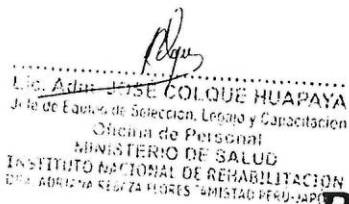 Lic. Adm. JOSE COLQUE HUAPAYA
Jefe de Equipo de Selección, Legajo y Capacitación
Oficina de Personal
MINISTERIO DE SALUD
INSTITUTO NACIONAL DE REHABILITACIÓN
DRA. ADRIANA REBAZA FLORES "AMISTAD PERU-JAPO